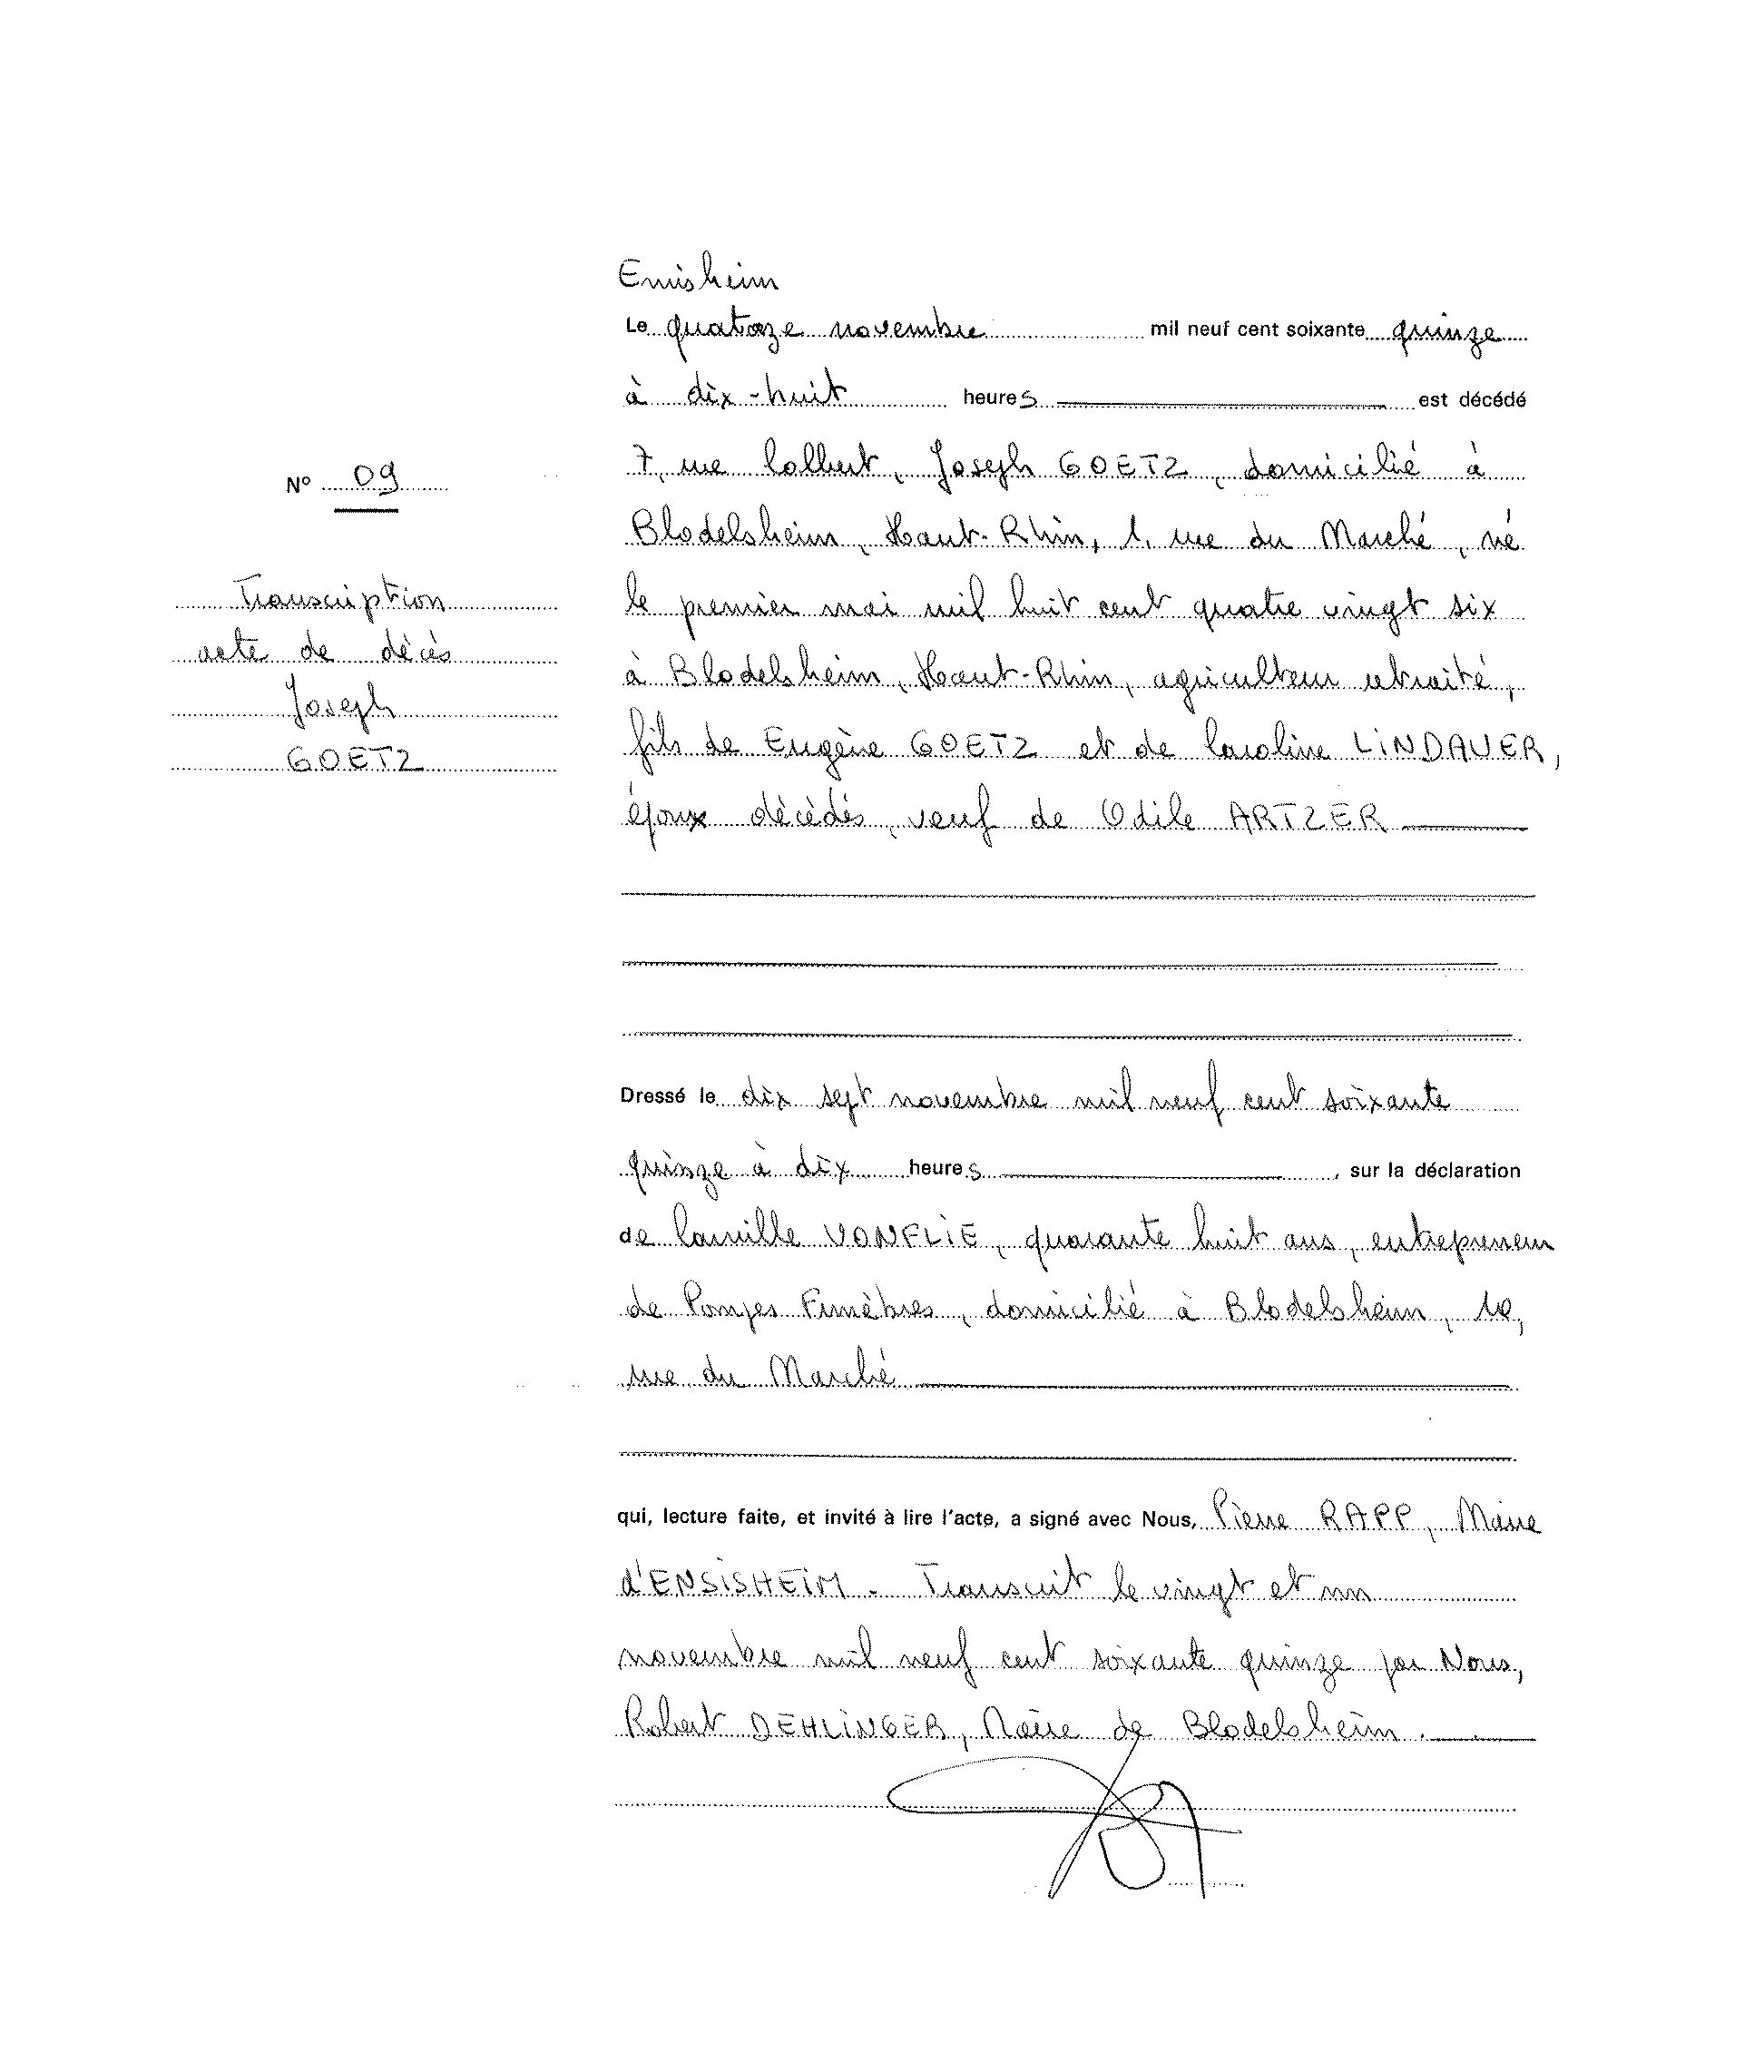 Ensisheim
Le quatorze novembre mil neuf cent soixante quinze
à dix-huit heures est décédé
7, rue Colbert, Joseph GOETZ, domicilié à
Blodelsheim, Haut-Rhin, 1, rue du Marché, né
le premier mai mil huit cent quatre vingt six
à Blodelsheim, Haut-Rhin, agriculteur retraité,
fils de Eugène GOETZ et de Caroline LINDAUER,
époux décédés, veuf de Odile ARTZER
N° 09
Transcription
acte de décès
Joseph
GOETZ
Dressé le dix sept novembre mil neuf cent soixante
quinze à dix heures, sur la déclaration
de Camille VONFLIE, quarante huit ans, entrepreneur
de Pompes Funèbres, domicilié à Blodelsheim, 10,
rue du Marché
qui, lecture faite, et invité à lire l'acte, a signé avec Nous, Pierre RAPP, Maire
d'ENSISHEIM. Transcrit le vingt et un
novembre mil neuf cent soixante quinze par Nous,
Robert DEHLINGER, Maire de Blodelsheim.